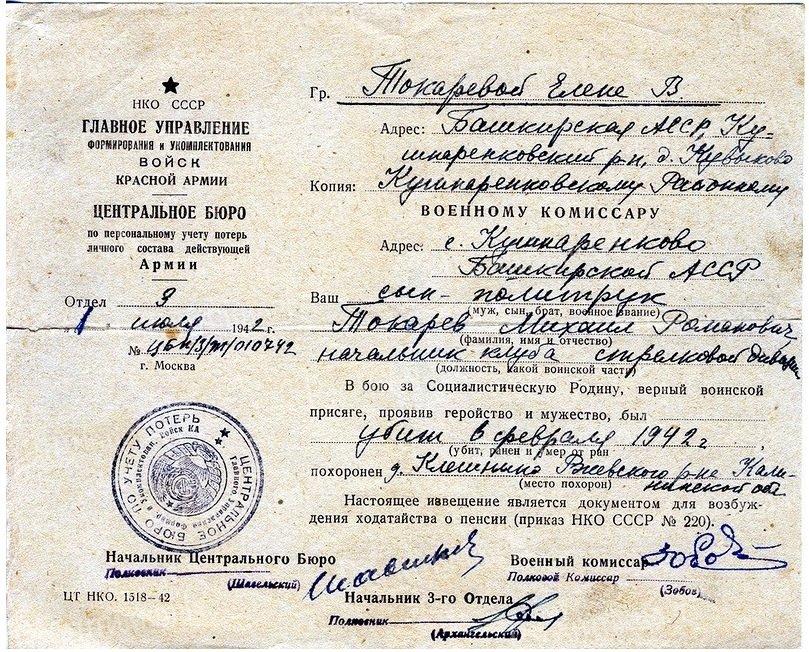 НКО СССР
ГЛАВНОЕ УПРАВЛЕНИЕ
ФОРМИРОВАНИЯ И УКОМПЛЕКТОВАНИЯ
ВОЙСК
КРАСНОЙ АРМИИ
ЦЕНТРАЛЬНОЕ БЮРО
по персональному учету потерь
личного состава действующей
Армии
Отдел 3
"1" июля 1942 г.
№ ЦБП/3/т/010742
г. Москва
Гр. Токаревой Елене В
Адрес: Башкирская АССР, Ку-
шнаренковский р-н, д. Кувыково
Копия: Кушнаренковскому Районному
ВОЕННОМУ КОМИССАРУ
Адрес: с. Кушнаренково
Башкирской АССР
Ваш сын - политрук
(муж, сын, брат, военное звание)
Токарев Михаил Романович
(фамилия, имя и отчество)
начальник клуба стрелковой
(должность, какой воинской части)
В бою за Социалистическую Родину, верный воинской
присяге, проявив геройство и мужество, был
убит в феврале 1942 г
(убит, ранен и умер от ран
похоронен д. Клешнино Ржевского р-не Кали-
(место похорон)
нинской обл
Настоящее извещение является документом для возбуж-
дения ходатайства о пенсии (приказ НКО СССР № 220).
ЦЕНТРАЛЬНОЕ БЮРО ПО УЧЕТУ ПОТЕРЬ
Начальник Центрального Бюро
Полковник
(Шавельский)
Военный комиссар
Полковой Комиссар
(Зобов)
ЦТ НКО. 1518—42
Начальник 3-го Отдела
Полковник
(Архангельский)